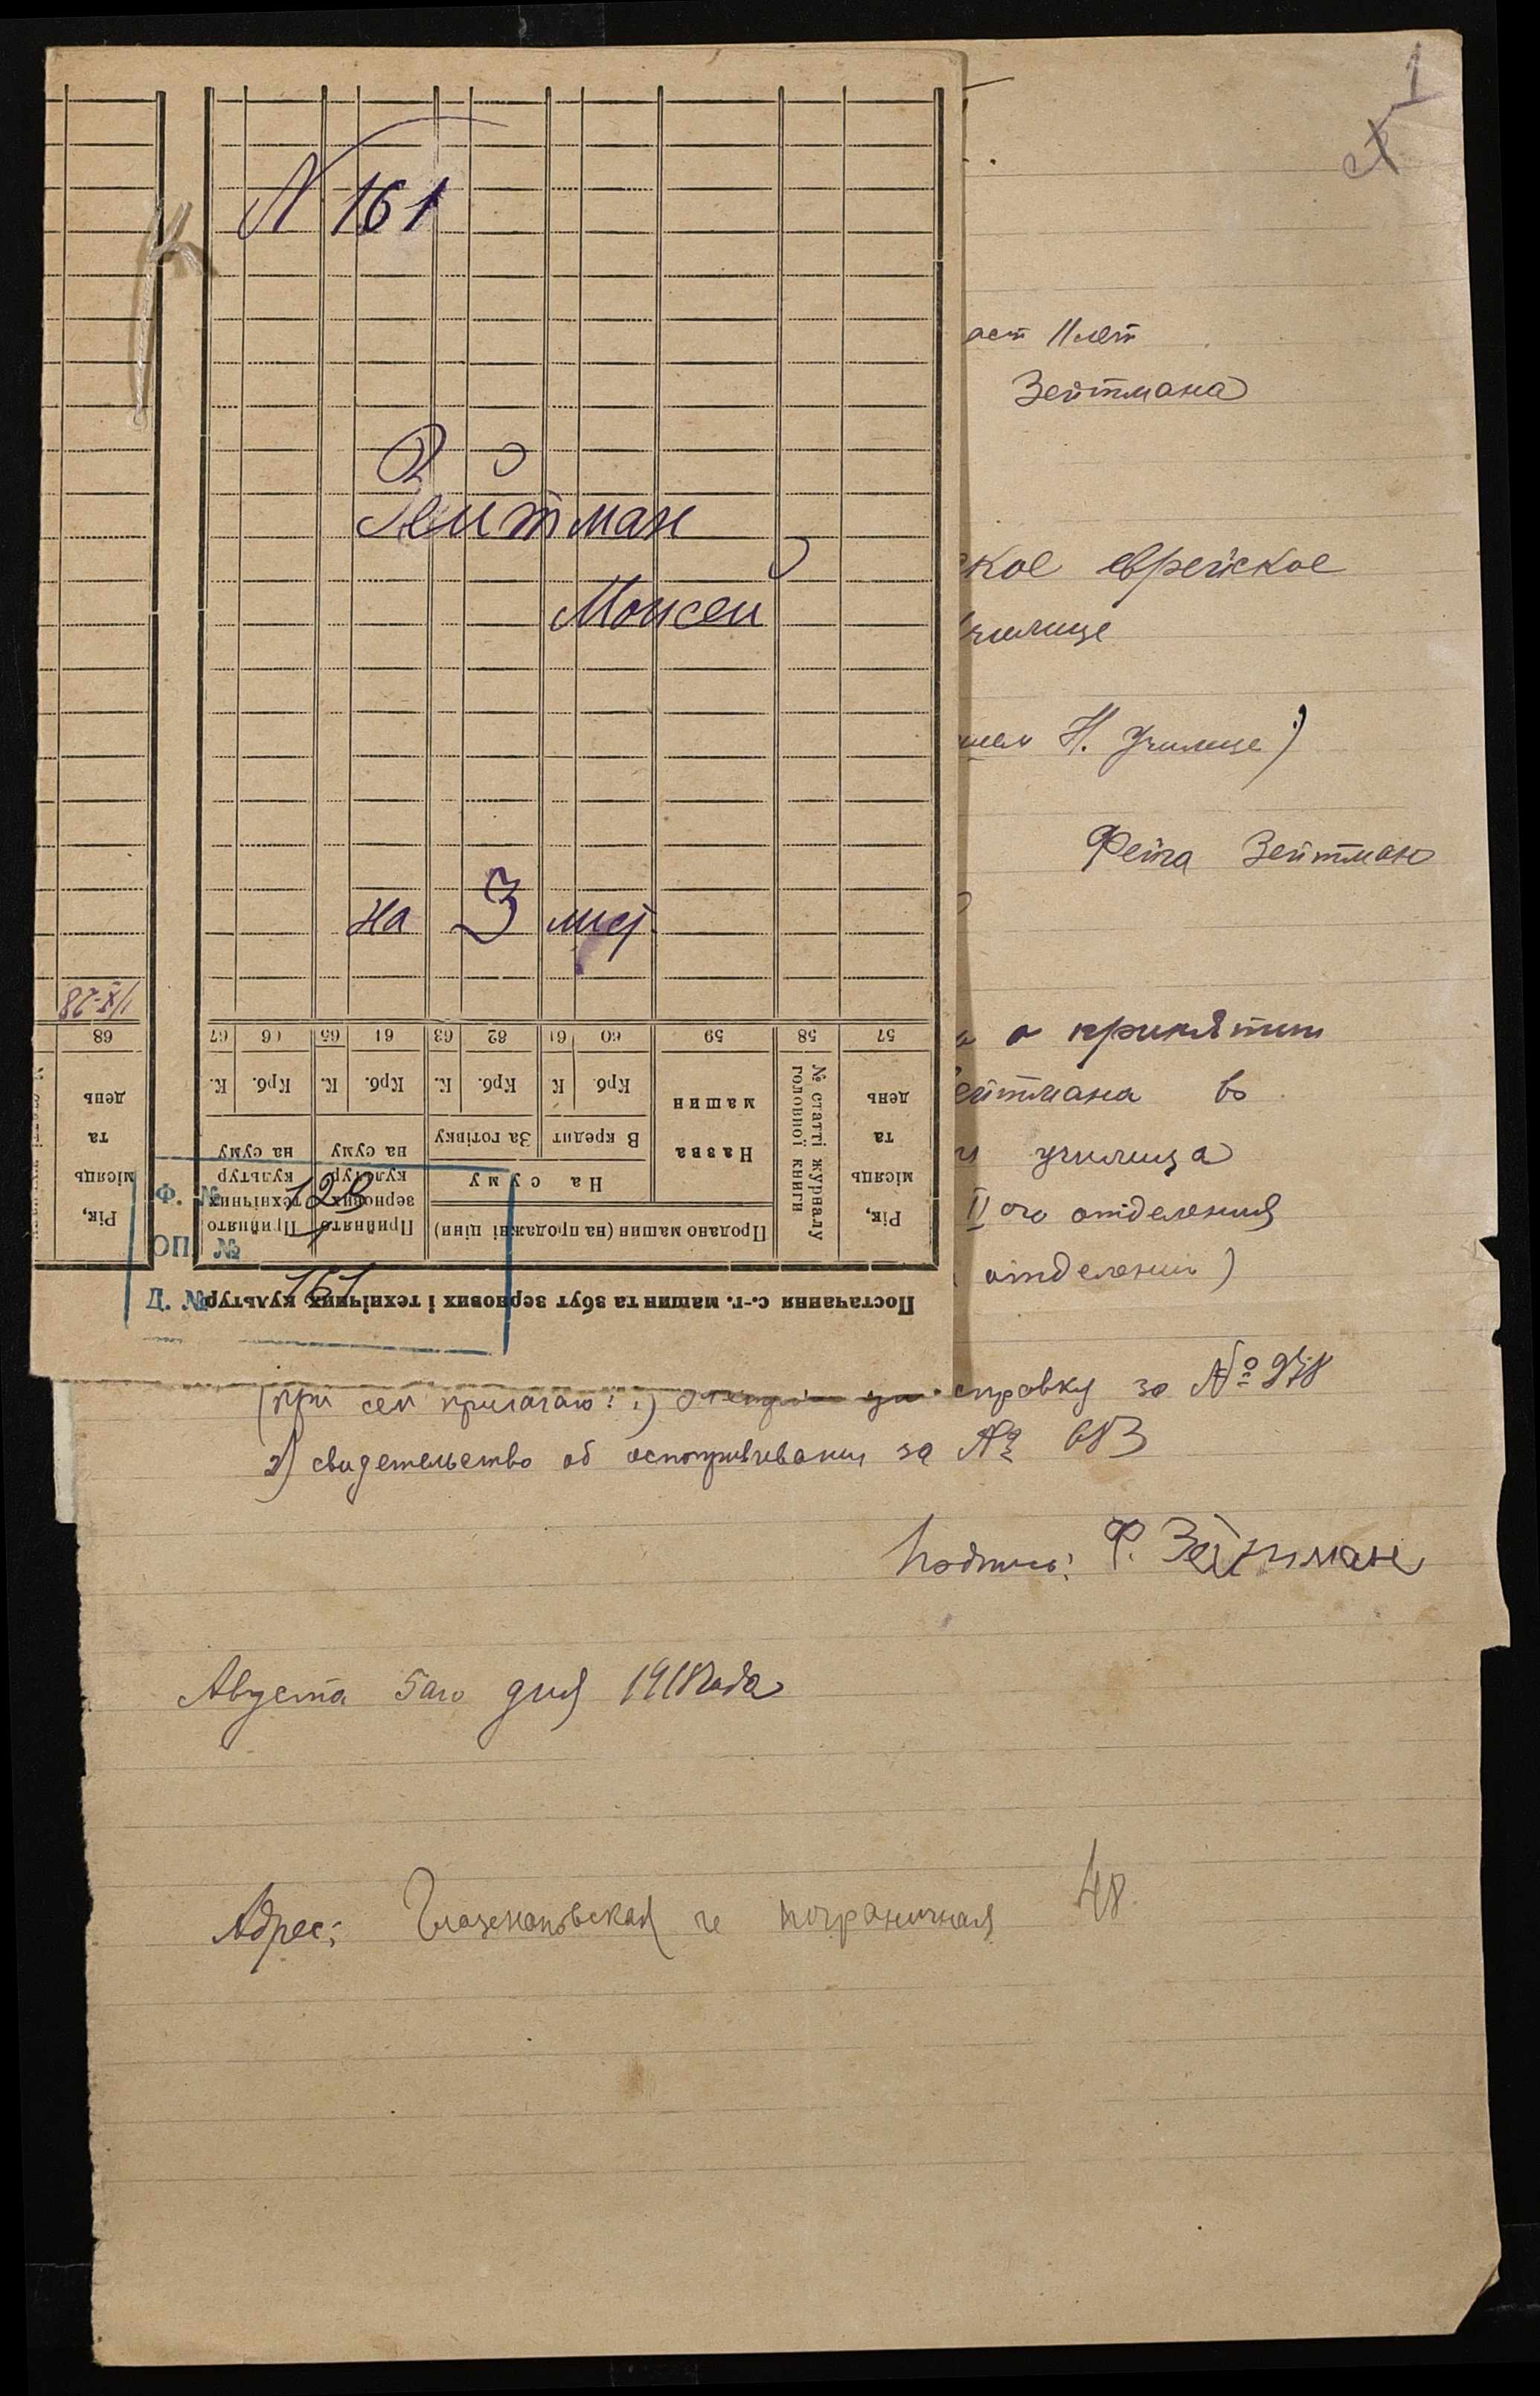 1
N 161
Зейтман
Моисей
на 3 лист.
1/X-28
68
67
66
65
64
63
62
61
60
59
58
57
К.
Крб.
К.
Крб.
К.
Крб.
К
Крб
Назва машин
№ статті журналу головної книги
Рік, місяць та день
Рік, місяць та день
В кредит
За готівку
На суму
Продано машин (на продажні ціни)
Прийнято зернових культур на суму
Прийнято технічних культур на суму
Постачання с.-г. машин та збут зернових і технічних культур
Ф. № 128
ОП. № 1
Д. № 161
аст 11 лет
Зейтмана
ское еврейское
училище
Н. Училище)
Фейга Зейтман
о принятии
ейтмана во
училища
II ого отделения
отделении)
(при сем прилагаю: 1) справку за № 938
2) свидетельство об оспопрививании за № 653
Подпись: Ф. Зейтман
Августа 5аго дня 1918 года
Адрес: Глазенаповская и пограничная 48